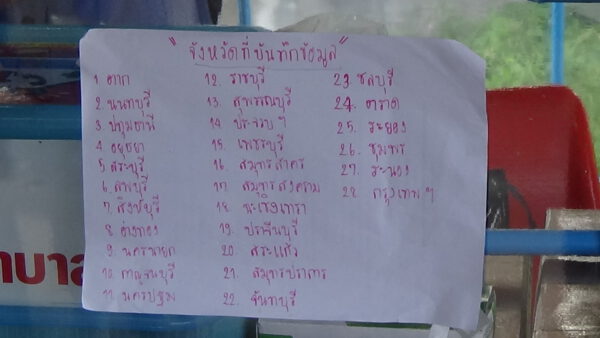 "จังหวัดที่บันทึกข้อมูล"
1 ตาก
2. นนทบุรี
3. ปทุมธานี
4 อยุธยา
5 สระบุรี
6. ลพบุรี
7. สิงห์บุรี
8 อ่างทอง
9. นครนายก
10. กาญจนบุรี
11. นครปฐม
12. ราชบุรี
13. สุพรรณบุรี
14 ประจวบ ฯ
15. เพชรบุรี
16. สมุทรสาคร
17. สมุทรสงคราม
18 ฉะเชิงเทรา
19. ปราจีนบุรี
20 สระแก้ว
21. สมุทรปราการ
22. จันทบุรี
23 ชลบุรี
24. ตราด
25. ระยอง
26. ชุมพร
27. ระนอง
28. กรุงเทพ ฯ
าบาล